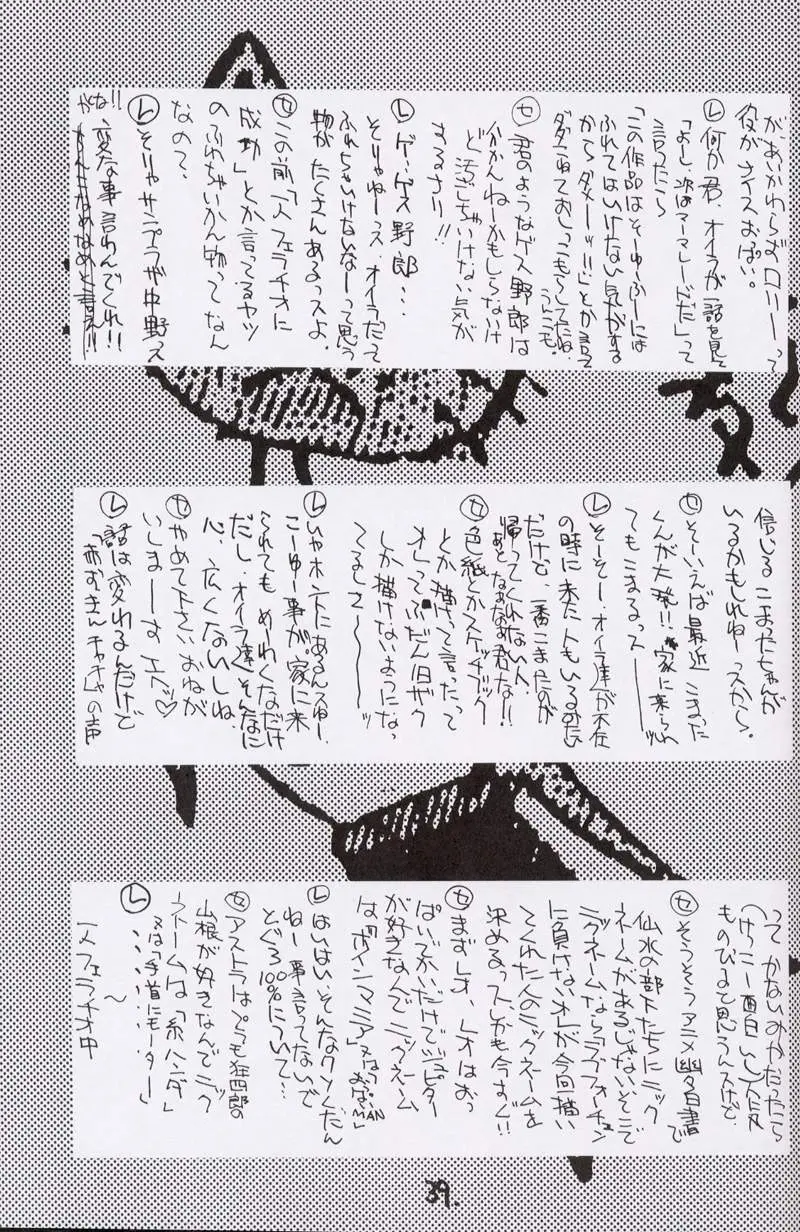 があいかわらずロリーって
役がナイスおっぱい。
Ⓛ何か君、オイラが話を見て
「よし、次はマーマレードだ」って
言ったら
「この作品はそーゆーふーには
ふれてはいけない気がする
からダメーッ!!」とか言って
ダダこねておしっこもらしてたね。
Ⓢ君のようなゲス野郎は
わかんねーかもしらないけ
ど汚しちゃいけない気が
するさり!!
Ⓛゲ、ゲス野郎…
そりゃねーっス、オイラだって
ふれちゃいけないなーって思う
物がたくさんあるっスよ。
Ⓢこの前「一人フェラチオに
成功」とか言ってるヤツ
のふれちゃいかん物ってなん
なの?
Ⓛそりゃサンプラザ中野っス
がな!!
変な事言わんでくれ!!
信じるこまったちゃんが
いるかもしれねーっスから。
Ⓢそーいえば最近こまった
くんが大発!!家に来られ
てもこまるっスーーッ
Ⓛそーそー、オイラ達が不在
の時に来た人もいるみたい
だけど、一番こまったのが
帰ってくれない人、
あとなぁなぁ君な!!
Ⓢ色紙とかスケッチブック
とか描けって言ったって
オレってふだん旧ザク
しか描けないようになっ
てるしさーーーッ
Ⓛいやホントにあるんスゆー、
こーゆー事が。家に来
られてもめーわくなだけ
だし、オイラ達そんなに
心、広くないしね
Ⓢやめて下さいおねが
いしまーすエヘ♡
Ⓛ話は変わるんだけど
「赤ずきんチャチャ」の声
ってかないみかだったら
(けっこー面白いし)人気
ものびると思うんスけど、
Ⓢそうそうアニメ幽★白書で
仙水の部下たちにニック
ネームがあるじゃないそこで
ニックネームならラブフォーチュン
に負けないオレが今回描い
てくれた人のニックネームを
決めるっスしかも今すぐ!!
Ⓢまずレオ、レオはおっ
ぱいでかいだけでジュピター
が好きなんでニックネーム
は「ボインマニア」
又は「おっぱいMAN」
Ⓛはいはい、そんなクソくだん
ねー事言ってないで
とぐろ100%について…
Ⓢアストラはぷらモ狂四郎の
山根が好きなんでニック
ネームは「糸ハンダ」
又は「手首にモーター」
Ⓛ……………
一人フェラチオ中
〜
39.